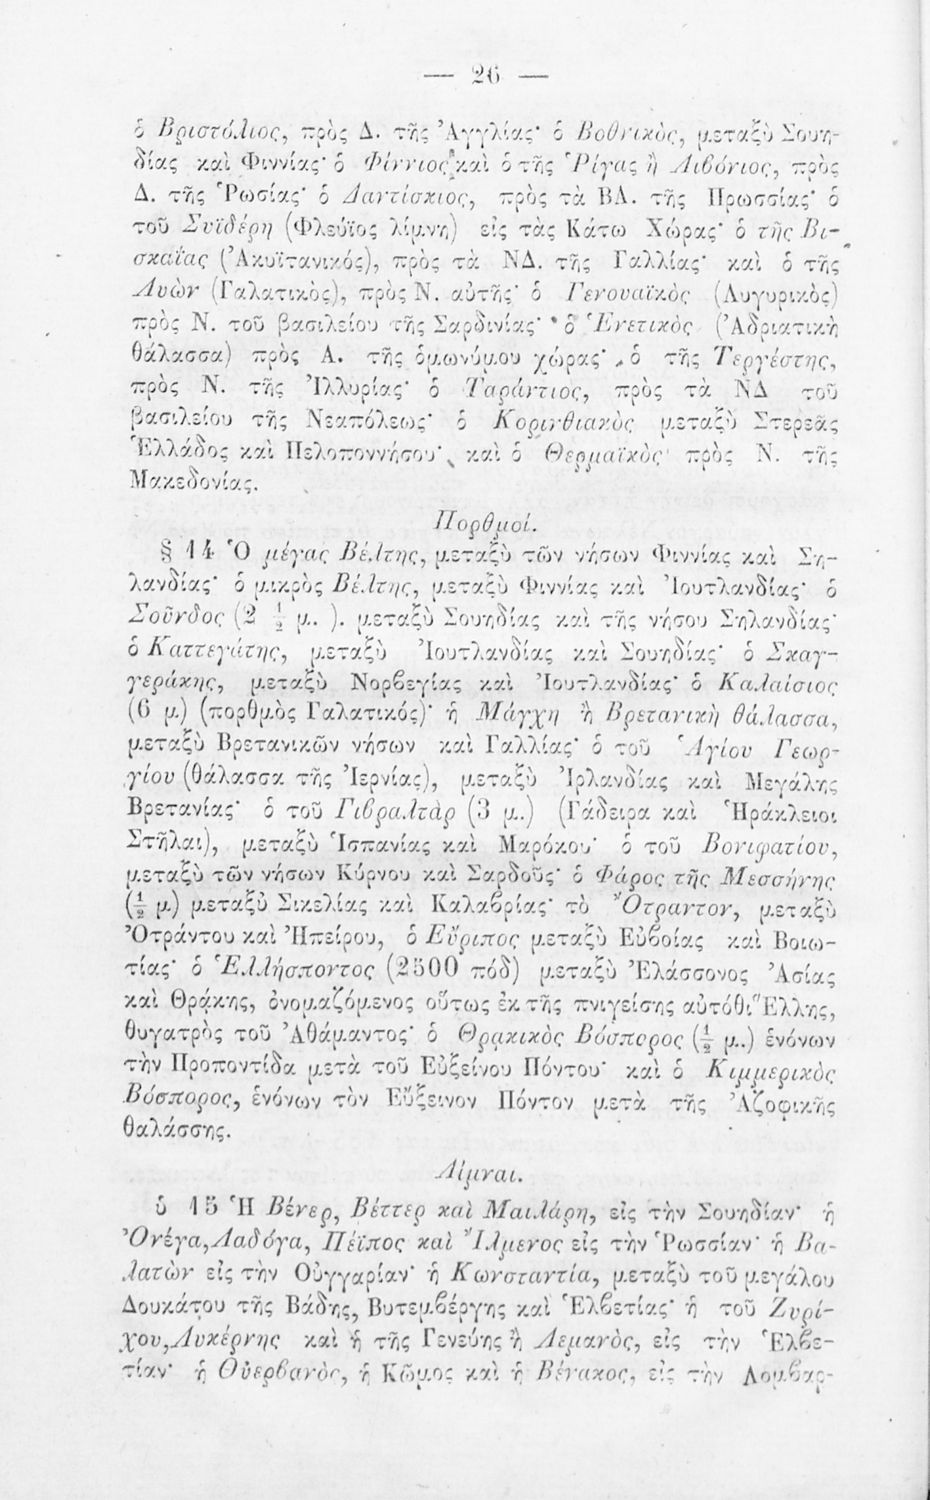 — 26 —
ὁ Βριστόλιος, πρὸς Δ. τῆς Ἀγγλίας· ὁ Βοθνικὸς, μεταξὺ Σουη-
δίας καὶ Φιννίας· ὁ Φίννιος καὶ ὁ τῆς Ῥίγας ἢ Λιβόνιος, πρὸς
Δ. τῆς Ῥωσίας· ὁ Δαντίσκιος, πρὸς τὰ ΒΑ. τῆς Πρωσσίας· ὁ
τοῦ Συϊδέρη (Φλεύϊος λίμνη) εἰς τὰς Κάτω Χώρας· ὁ τῆς Βι-
σκαΐας (Ἀκυϊτανικός), πρὸς τὰ ΝΔ. τῆς Γαλλίας· καὶ ὁ τῆς
Λυὼν (Γαλατικὸς), πρὸς Ν. αὐτῆς· ὁ Γενουαϊκὸς (Λυγυρικὸς)
πρὸς Ν. τοῦ βασιλείου τῆς Σαρδινίας· ὁ Ἑνετικὸς (Ἀδριατικὴ
θάλασσα) πρὸς Α. τῆς ὁμωνύμου χώρας· ὁ τῆς Τεργέστης,
πρὸς Ν. τῆς Ἰλλυρίας· ὁ Ταράντιος, πρὸς τὰ ΝΔ τοῦ
βασιλείου τῆς Νεαπόλεως· ὁ Κορινθιακὸς μεταξὺ Στερεᾶς
Ἑλλάδος καὶ Πελοποννήσου· καὶ ὁ Θερμαϊκὸς πρὸς Ν. τῆς
Μακεδονίας.
Πορθμοί.
§ 14 Ὁ μέγας Βέλτης, μεταξὺ τῶν νήσων Φιννίας καὶ Ση-
λανδίας· ὁ μικρὸς Βέλτης, μεταξὺ Φιννίας καὶ Ἰουτλανδίας· ὁ
Σοῦνδος (2 ½ μ. ). μεταξὺ Σουηδίας καὶ τῆς νήσου Σηλανδίας·
ὁ Καττεγάτης, μεταξὺ Ἰουτλανδίας καὶ Σουηδίας· ὁ Σκαγ-
γεράκης, μεταξὺ Νορβεγίας καὶ Ἰουτλανδίας· ὁ Καλαίσιος
(6 μ.) (πορθμὸς Γαλατικός)· ἡ Μάγχη ἢ Βρετανικὴ θάλασσα,
μεταξὺ Βρετανικῶν νήσων καὶ Γαλλίας· ὁ τοῦ Ἁγίου Γεωρ-
γίου (θάλασσα τῆς Ἰερνίας), μεταξὺ Ἰρλανδίας καὶ Μεγάλης
Βρετανίας· ὁ τοῦ Γιβραλτὰρ (3 μ.) (Γάδειρα καὶ Ἡράκλειοι
Στῆλαι), μεταξὺ Ἱσπανίας καὶ Μαρόκου· ὁ τοῦ Βονιφατίου,
μεταξὺ τῶν νήσων Κύρνου καὶ Σαρδοῦς· ὁ Φάρος τῆς Μεσσήνης
(½ μ.) μεταξὺ Σικελίας καὶ Καλαβρίας· τὸ Ὄτραντον, μεταξὺ
Ὀτράντου καὶ Ἠπείρου, ὁ Εὔριπος μεταξὺ Εὐβοίας καὶ Βοιω-
τίας· ὁ Ἑλλήσποντος (2500 πόδ) μεταξὺ Ἐλάσσονος Ἀσίας
καὶ Θράκης, ὀνομαζόμενος οὕτως ἐκ τῆς πνιγείσης αὐτόθι Ἕλλης,
θυγατρὸς τοῦ Ἀθάμαντος· ὁ Θρακικὸς Βόσπορος (½ μ.) ἑνόνων
τὴν Προποντίδα μετὰ τοῦ Εὐξείνου Πόντου· καὶ ὁ Κιμμερικὸς
Βόσπορος, ἑνόνων τὸν Εὔξεινον Πόντον μετὰ τῆς Ἀζοφικῆς
θαλάσσης.
Λίμναι.
§ 15 Ἡ Βένερ, Βέττερ καὶ Μαιλάρη, εἰς τὴν Σουηδίαν· ἡ
Ὀνέγα, Λαδόγα, Πέϊπος καὶ Ἴλμενος εἰς τὴν Ῥωσσίαν· ἡ Βα-
λατὼν εἰς τὴν Οὐγγαρίαν· ἡ Κωνσταντία, μεταξὺ τοῦ μεγάλου
Δουκάτου τῆς Βάδης, Βυτεμβέργης καὶ Ἑλβετίας· ἡ τοῦ Ζυρί-
χου, Λυκέρνης καὶ ἡ τῆς Γενεύης ἢ Λεμανὸς, εἰς τὴν Ἑλβε-
τίαν· ἡ Οὐερβανὸς, ἡ Κῶμος καὶ ἡ Βένακος, εἰς τὴν Λομβαρ-